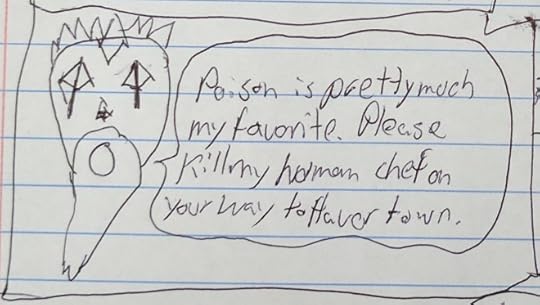 Poison is pretty much
my favorite. Please
Kill my human chef on
your way to flaver town.